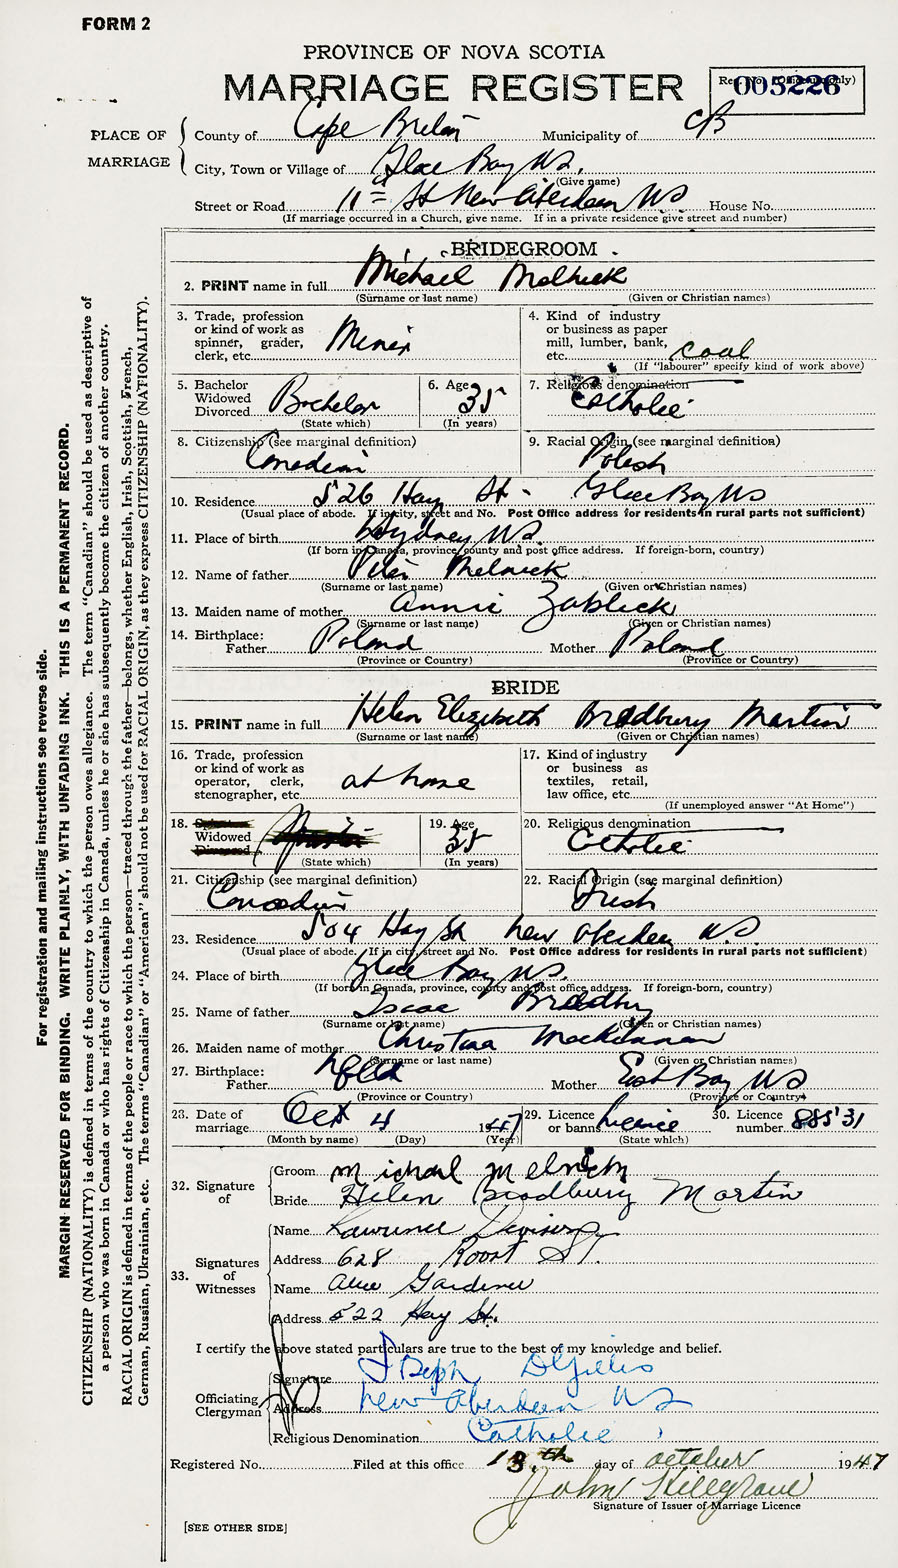 FORM 2
PROVINCE OF NOVA SCOTIA
MARRIAGE REGISTER
Reg. No. (Office use only)
005226
PLACE OF MARRIAGE
County of Cape Breton Municipality of CB
City, Town or Village of Glace Bay NS.
(Give name)
Street or Road 11th St New Aberdeen NS House No.
(If marriage occurred in a Church, give name. If in a private residence give street and number)
BRIDEGROOM
2. PRINT name in full Michael Melnick
(Surname or last name) (Given or Christian names)
3. Trade, profession or kind of work as spinner, grader, clerk, etc. Miner
4. Kind of industry or business as paper mill, lumber, bank, etc. coal
(If "labourer" specify kind of work above)
5. Bachelor Widowed Divorced Bachelor
(State which)
6. Age 35
(In years)
7. Religious denomination Catholic
8. Citizenship (see marginal definition) Canadian
9. Racial Origin (see marginal definition) Polish
10. Residence 526 Hay St. Glace Bay NS
(Usual place of abode. If in city, street and No. Post Office address for residents in rural parts not sufficient)
11. Place of birth Sydney NS.
(If born in Canada, province, county and post office address. If foreign-born, country)
12. Name of father Peter Melnick
(Surname or last name) (Given or Christian names)
13. Maiden name of mother Annie
(Surname or last name) (Given or Christian names)
14. Birthplace:
Father Poland Mother Poland
(Province or Country) (Province or Country)
BRIDE
15. PRINT name in full Helen Elizabeth Bradbury Martin
(Surname or last name) (Given or Christian names)
16. Trade, profession or kind of work as operator, clerk, stenographer, etc. at home
17. Kind of industry or business as textiles, retail, law office, etc.
(If unemployed answer "At Home")
18. Spinster Widowed Divorced
(State which)
19. Age 35
(In years)
20. Religious denomination Catholic
21. Citizenship (see marginal definition) Canadian
22. Racial Origin (see marginal definition) Irish
23. Residence 504 Hay St New Aberdeen N.S.
(Usual place of abode. If in city, street and No. Post Office address for residents in rural parts not sufficient)
24. Place of birth Glace Bay NS.
(If born in Canada, province, county and post office address. If foreign-born, country)
25. Name of father Isaac Bradbury
(Surname or last name) (Given or Christian names)
26. Maiden name of mother Christina MacKinnon
(Surname or last name) (Given or Christian names)
27. Birthplace:
Father Nfld Mother East Bay NS
(Province or Country) (Province or Country)
28. Date of marriage Oct 4 1947
(Month by name) (Day) (Year)
29. Licence or banns licence
(State which)
30. Licence number 88531
32. Signature of
Groom Michael Melnick
Bride Helen Bradbury Martin
33. Signatures of Witnesses
Name Lawrence
Address 628 Roost ST.
Name Alice Gardiner
Address 522 Hay St.
I certify the above stated particulars are true to the best of my knowledge and belief.
Officiating Clergyman
Signature Joseph D Gillis
Address New Aberdeen NS
Religious Denomination Catholic
Registered No. Filed at this office 13.th day of october 1947
John Hillgrove
Signature of Issuer of Marriage Licence
[SEE OTHER SIDE]
For registration and mailing instructions see reverse side.
MARGIN RESERVED FOR BINDING. WRITE PLAINLY, WITH UNFADING INK. THIS IS A PERMANENT RECORD.
CITIZENSHIP (NATIONALITY) is defined in terms of the country to which the person owes allegiance. The term "Canadian" should be used as descriptive of
a person who was born in Canada or who has rights of Citizenship in Canada, unless he or she has subsequently become the citizen of another country.
RACIAL ORIGIN is defined in terms of the people or race to which the person—traced through the father—belongs, whether English, Irish, Scottish, French,
German, Russian, Ukrainian, etc. The terms "Canadian" or "American" should not be used for RACIAL ORIGIN, as they express CITIZENSHIP (NATIONALITY).